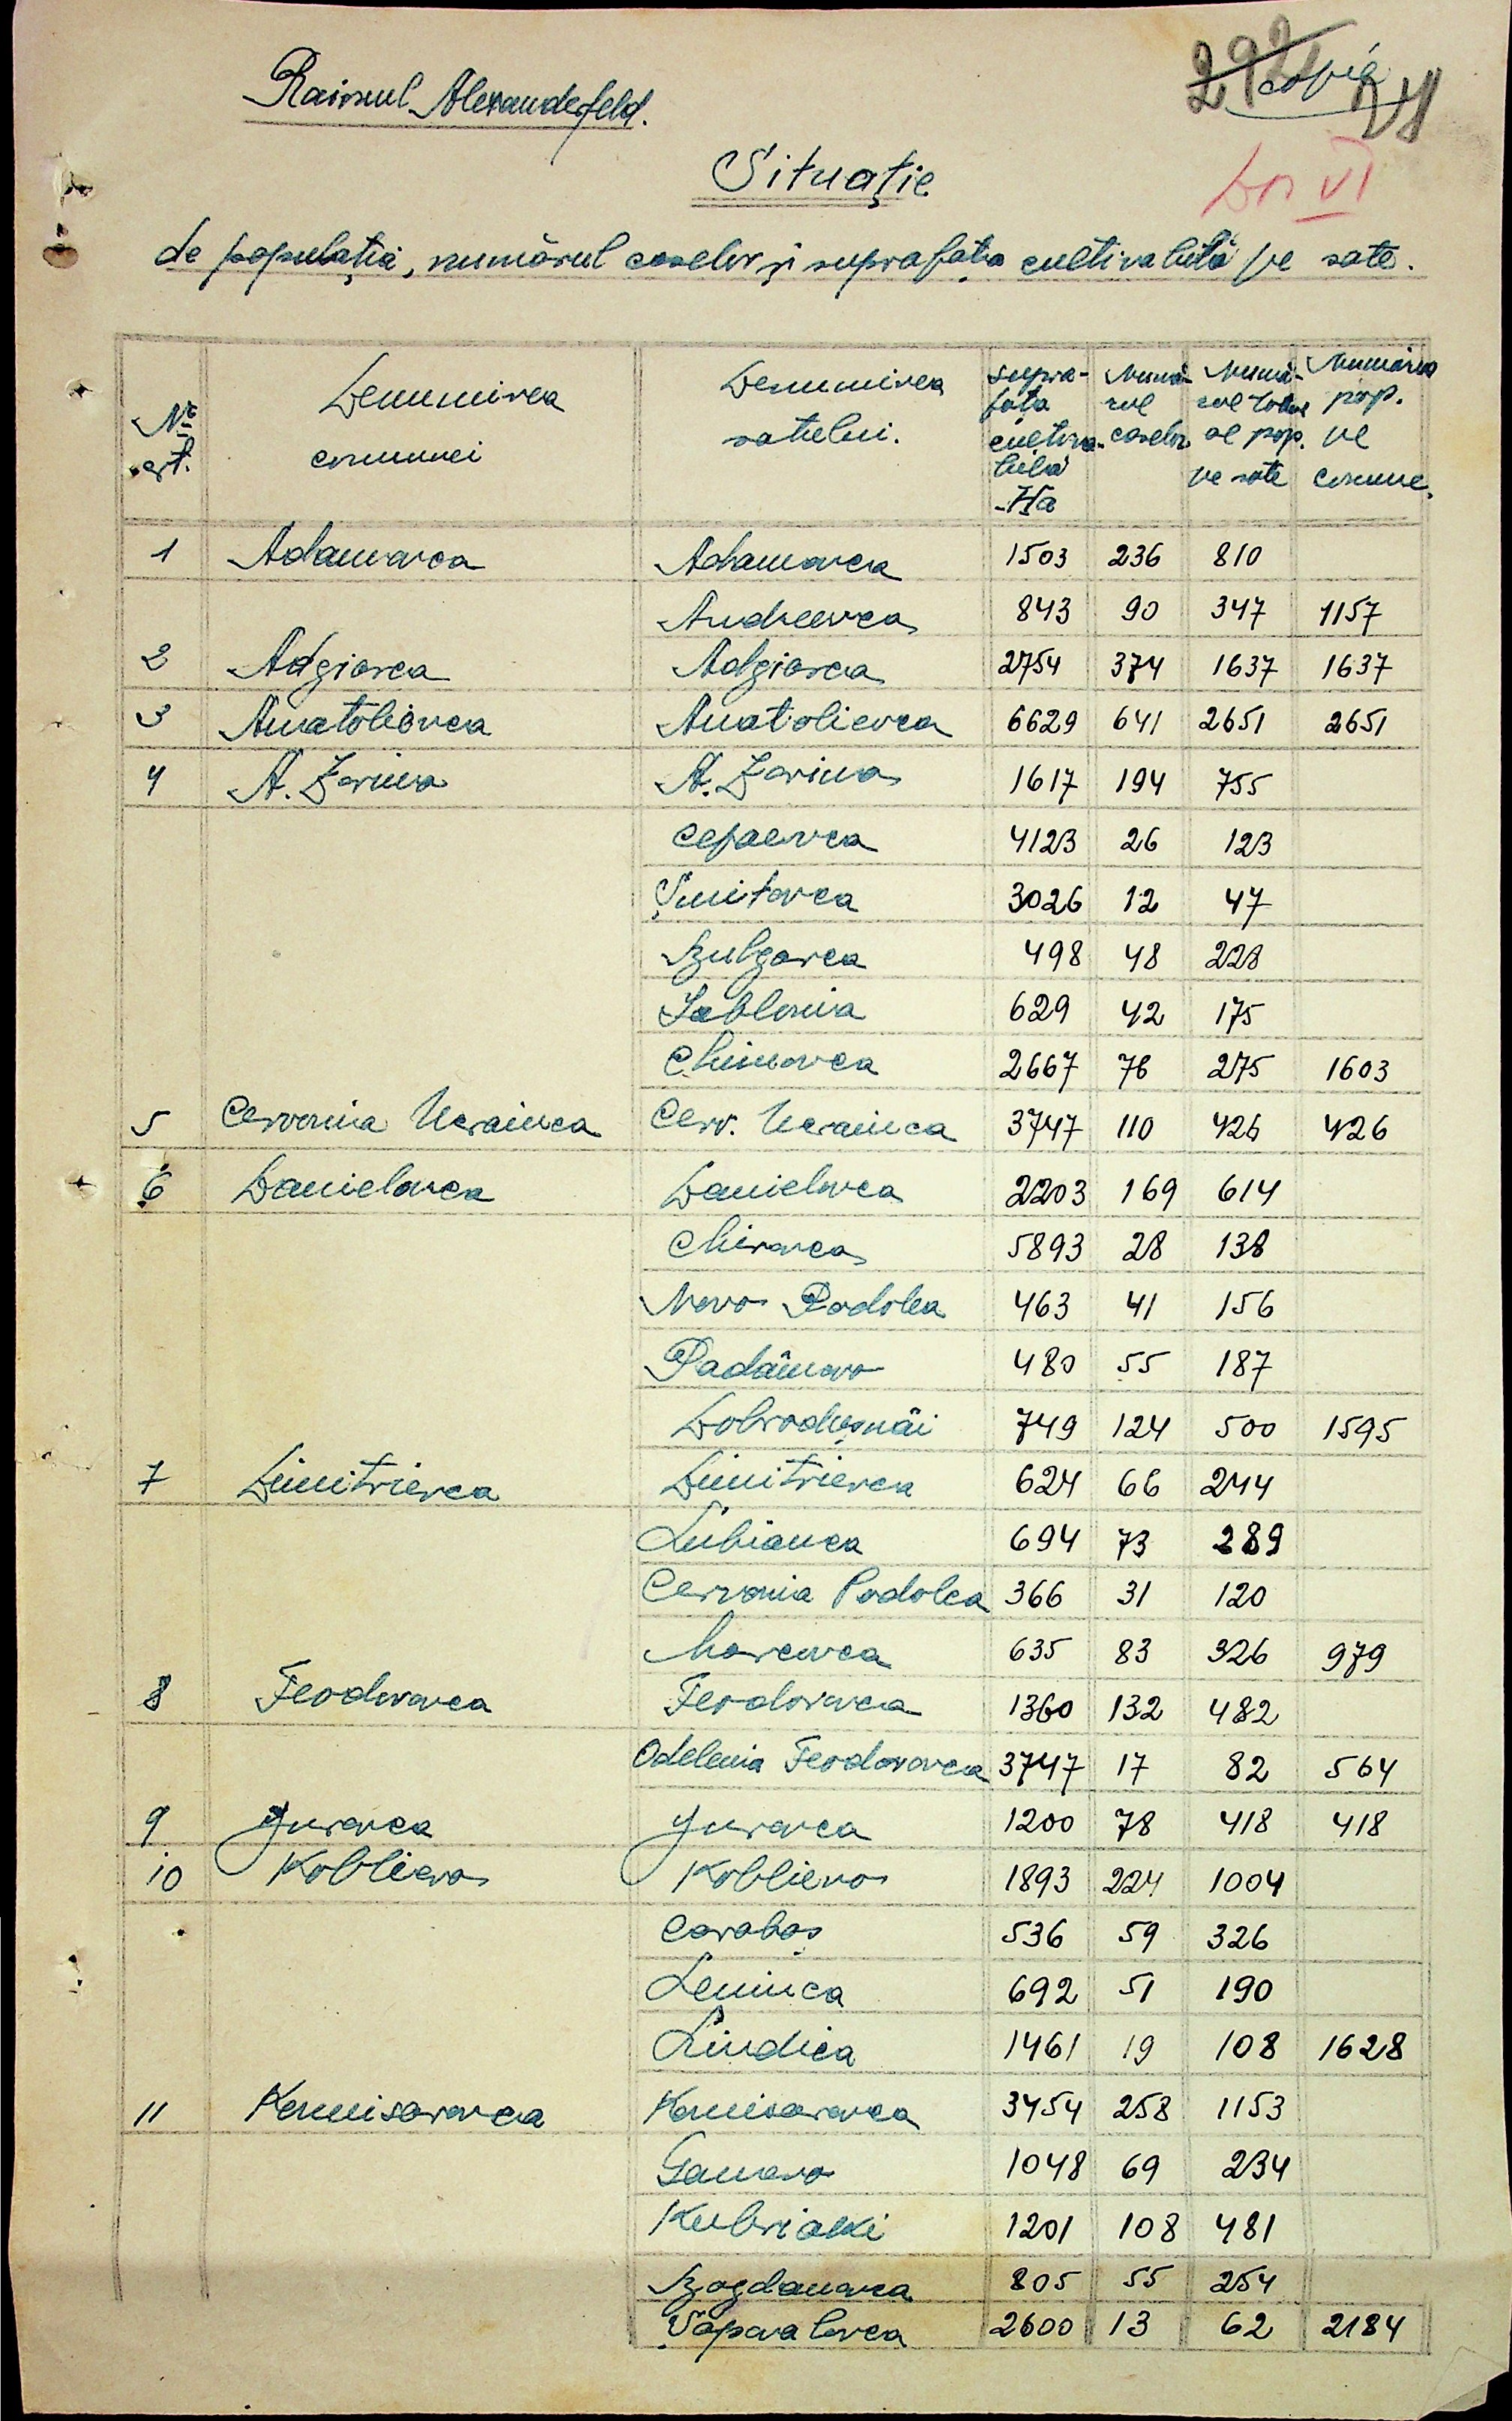 Raionul Alexanderfeld.
copie
Dos VI
Situație
de populația, numărul caselor și suprafața cultivabilă pe sate.
Nr. crt. Denumirea comunei Denumirea satului. Suprafața cultivabilă Ha Numărul caselor Numărul total al pop. pe sate Numărul pop. pe comune.
1 Adamovca Adamovca 1503 236 810
Andreevca 843 90 347 1157
2 Adgiasca Adgiasca 2754 374 1637 1637
3 Anatolievca Anatolievca 6629 641 2651 2651
4 A. Zarina A. Zarina 1617 194 755
Cepaevca 4123 26 123
Șmitovca 3026 12 47
Bulgarca 498 48 228
Iablonia 629 42 175
Chimovca 2667 76 275 1603
5 Cervonia Ucrainca Cerv. Ucrainca 3747 110 426 426
6 Danielovca Danielovca 2203 169 614
Chirovca 5893 28 138
Novo Podolca 463 41 156
Radânovo 480 55 187
Dobrodușnâi 749 124 500 1595
7 Dimitrievca Dimitrievca 624 66 244
Lubianca 694 73 289
Cervonia Podolca 366 31 120
Marcovca 635 83 326 979
8 Feodorovca Feodorovca 1360 132 482
Odelenia Feodorovca 3747 17 82 564
9 Jurovca Jurovca 1200 78 418 418
10 Koblievo Koblievo 1893 224 1004
Carabaș 536 59 326
Leninca 692 51 190
Lindica 1461 19 108 1628
11 Komisarovca Komisarovca 3454 258 1153
Ganovo 1048 69 234
Kubriaki 1201 108 481
Bogdanovca 805 55 254
Șapovalovca 2600 13 62 2184